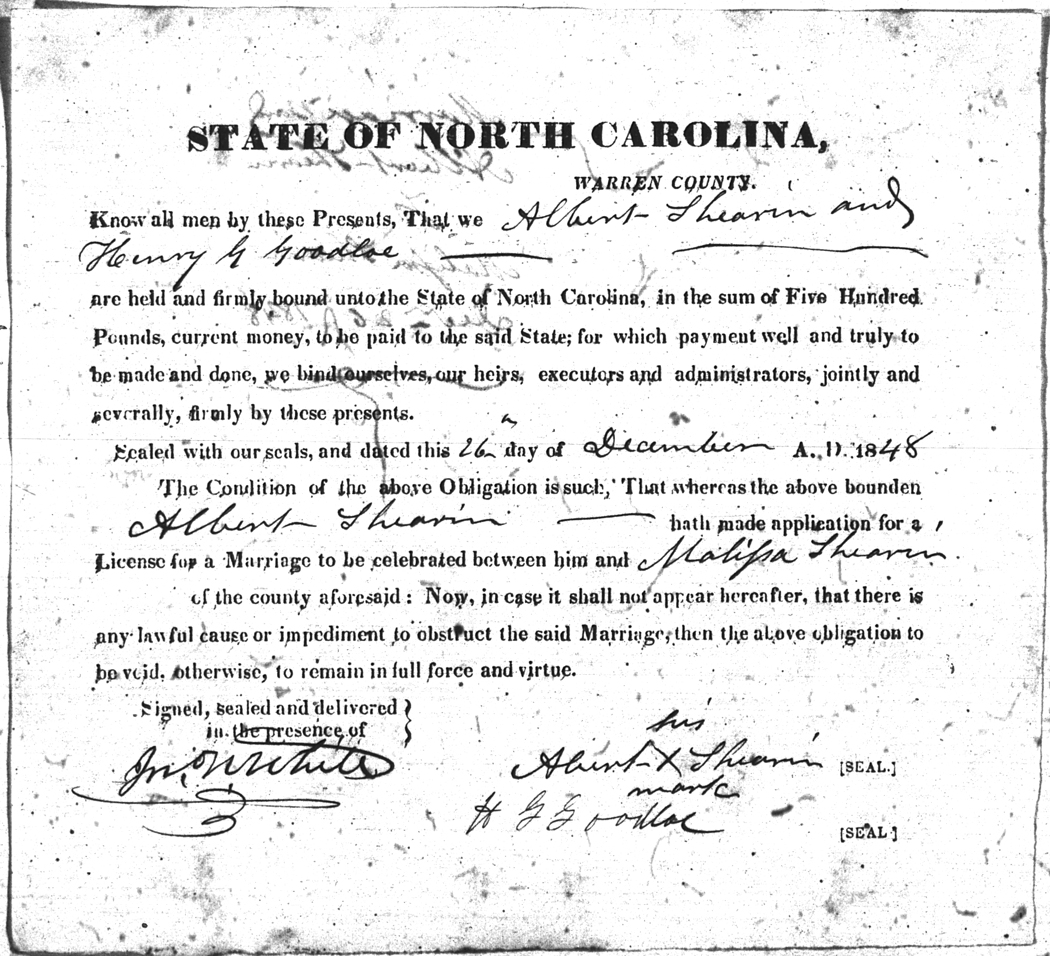 STATE OF NORTH CAROLINA,
WARREN COUNTY.
Know all men by these Presents, That we Albert Shearin and
Henry G Goodloe
are held and firmly bound unto the State of North Carolina, in the sum of Five Hundred
Pounds, current money, to be paid to the said State; for which payment well and truly to
be made and done, we bind ourselves, our heirs, executors and administrators, jointly and
severally, firmly by these presents.
Sealed with our seals, and dated this 26 day of December A. D. 1848
The Condition of the above Obligation is such, That whereas the above bounden
Albert Shearin hath made application for a
License for a Marriage to be celebrated between him and Malissa Shearin
of the county aforesaid: Now, in case it shall not appear hereafter, that there is
any lawful cause or impediment to obstruct the said Marriage, then the above obligation to
be void, otherwise, to remain in full force and virtue.
Signed, sealed and delivered
in the presence of
his
Jno. W White Albert X Shearin [SEAL.]
mark
H G Goodloe [SEAL.]